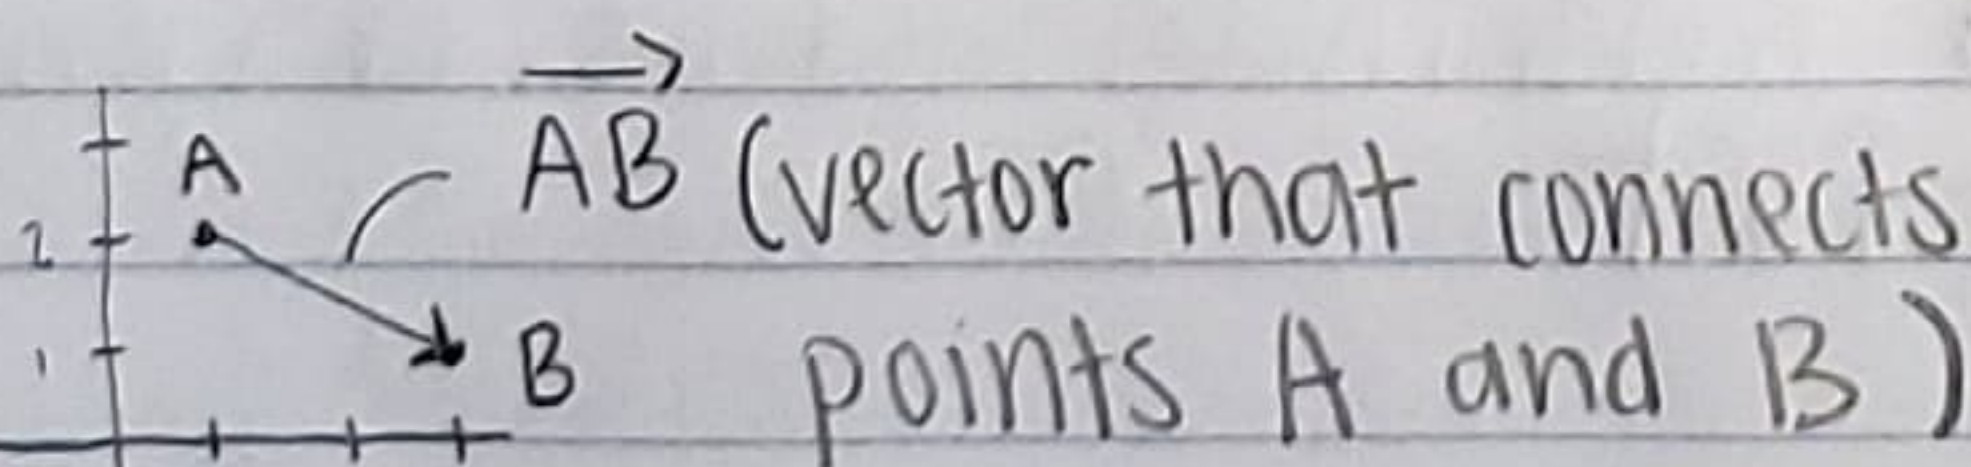 A $\overrightarrow{AB}$ (vector that connects
2
1 B points A and B)